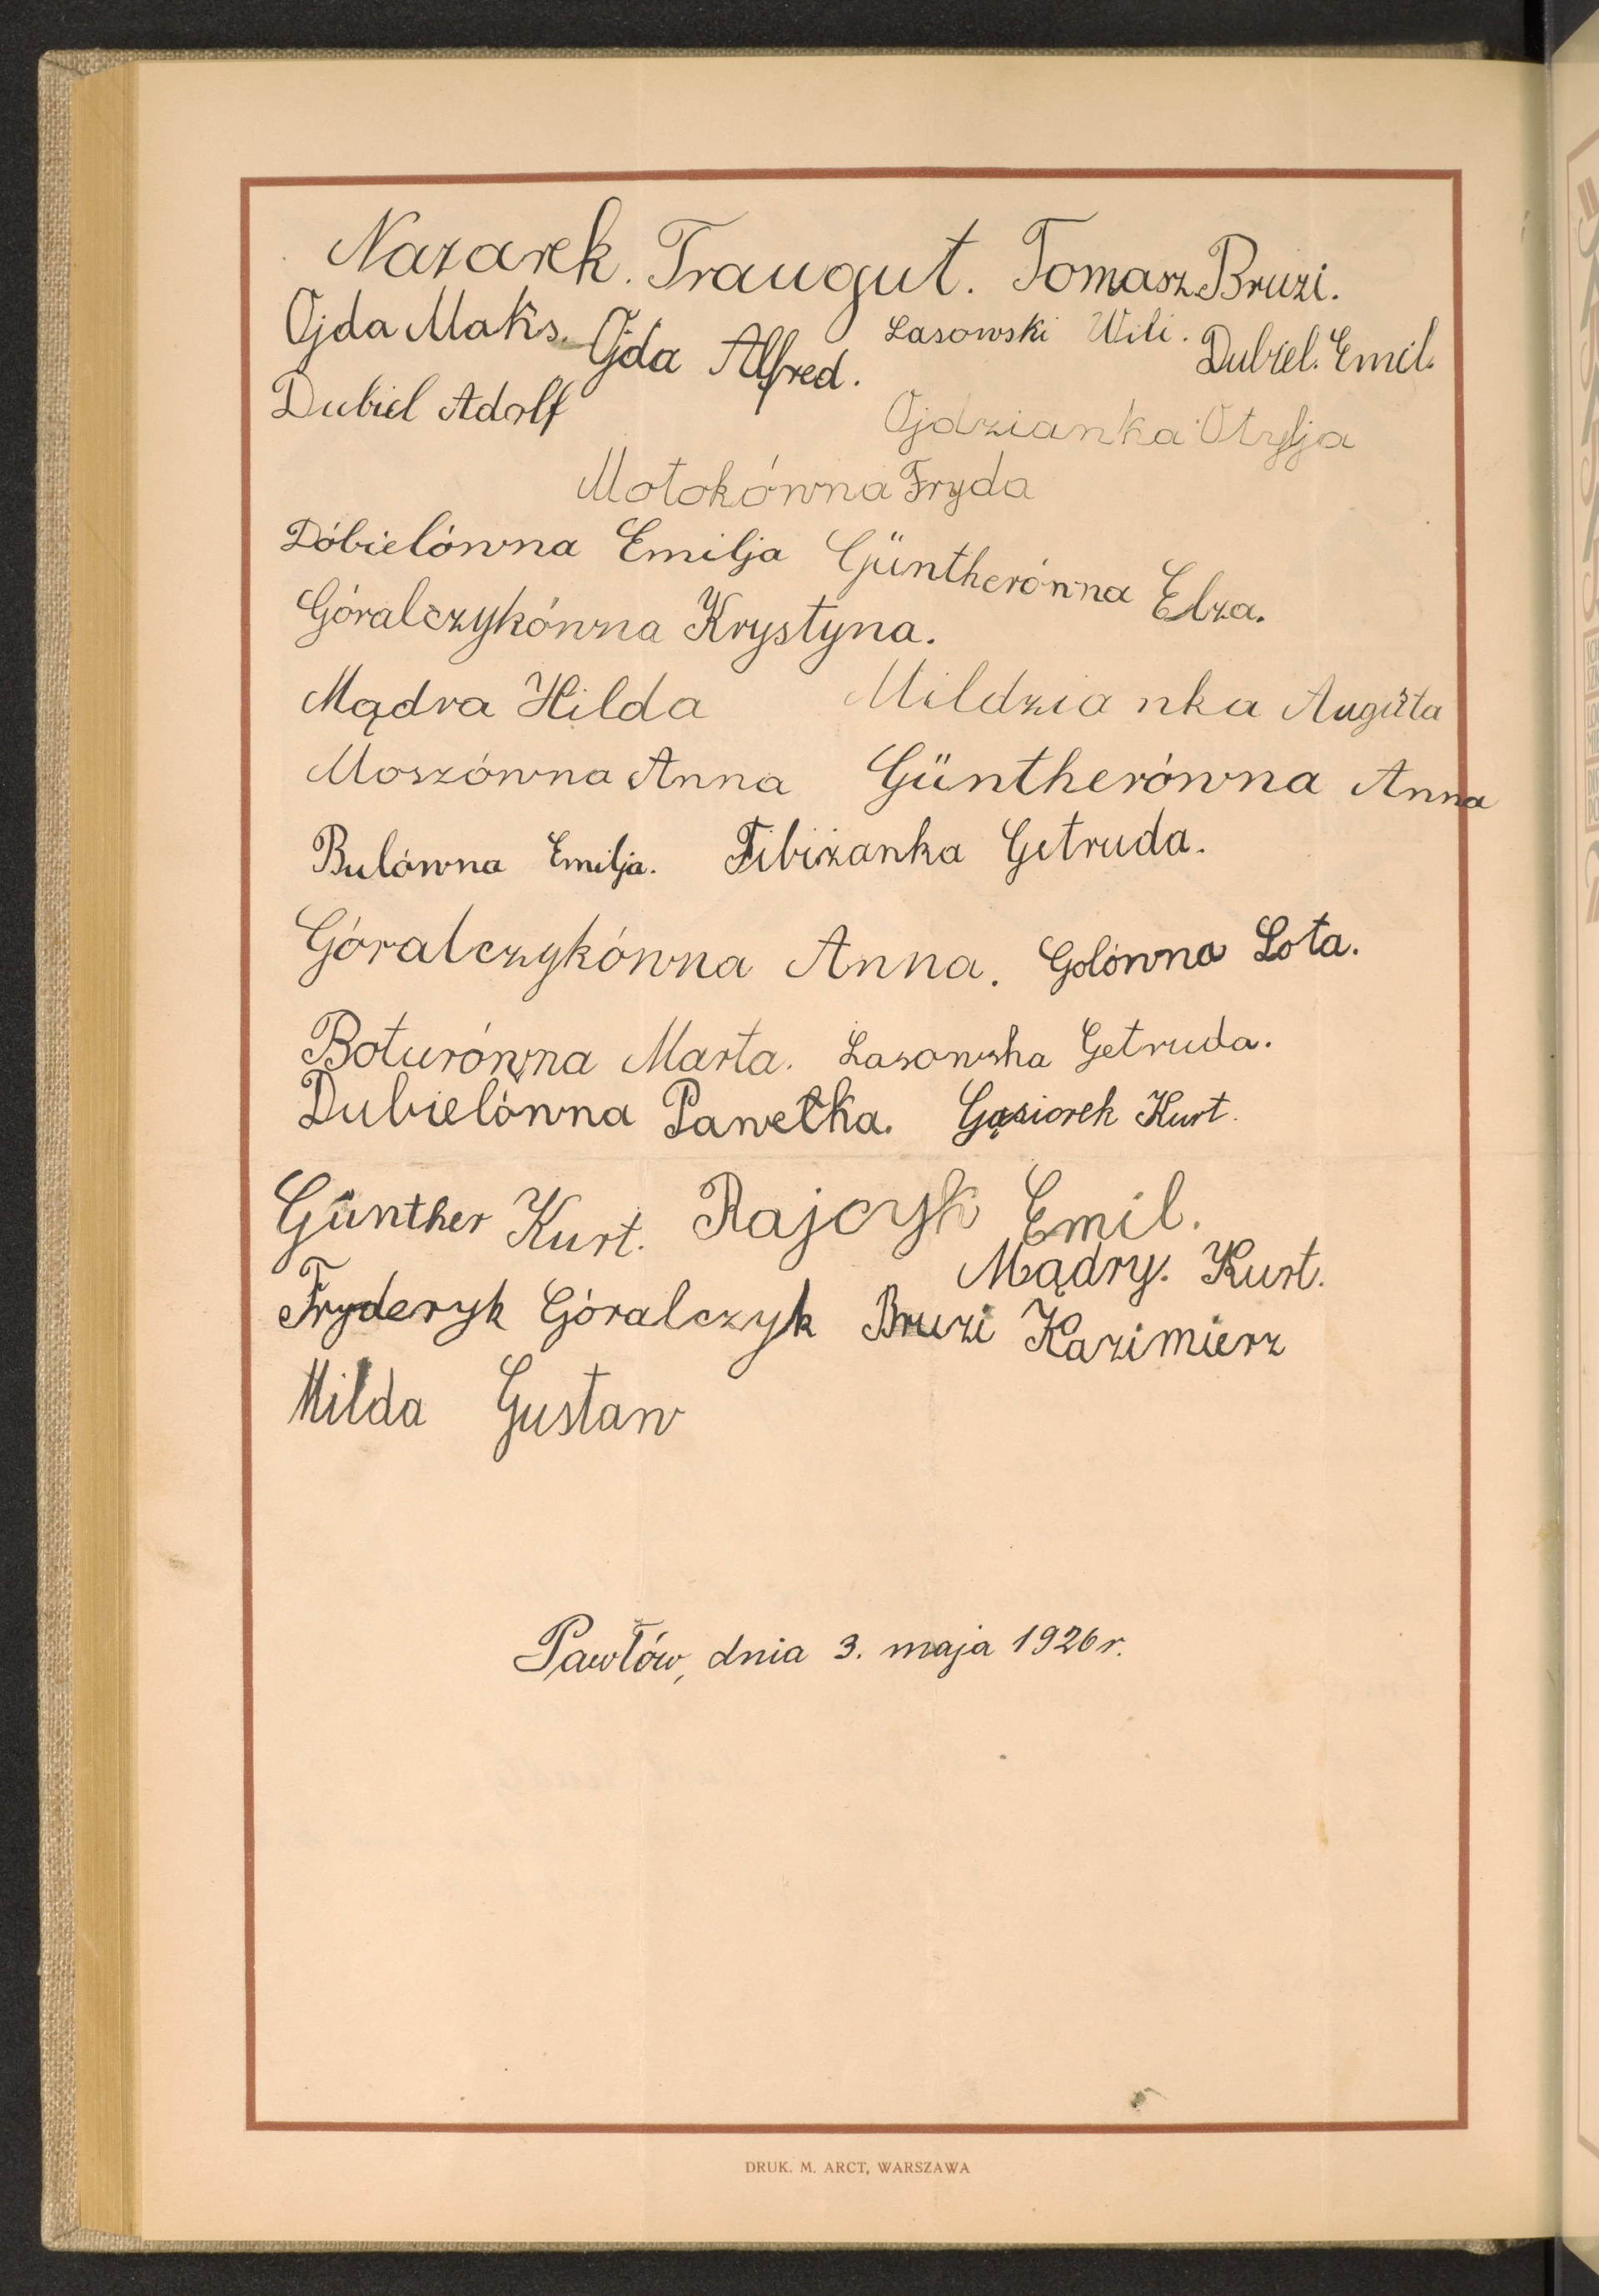 Nazarek. Traugut. Tomasz Bruzi.
Ojda Maks. Ojda Alfred. Lasowski Wili. Dubiel. Emil.
Dubiel Adolf Ojdzianka Otylja
Motokówna Fryda
Dóbielówna Emilja Güntherówna Elza.
Góralczykówna Krystyna.
Mądra Hilda Mildzianka Augusta
Moszówna Anna Güntherówna Anna
Bulówna Emilja. Fibiżanka Getruda.
Góralczykówna Anna. Golówna Lota.
Boturówna Marta. Lasowska Getruda.
Dubielówna Pawełka. Gąsiorek Kurt.
Günther Kurt. Rajczyk Emil.
Mądry. Kurt.
Fryderyk Góralczyk Bruzi Kazimierz
Milda Gustaw
Pawłów, dnia 3. maja 1926 r.
DRUK. M. ARCT, WARSZAWA